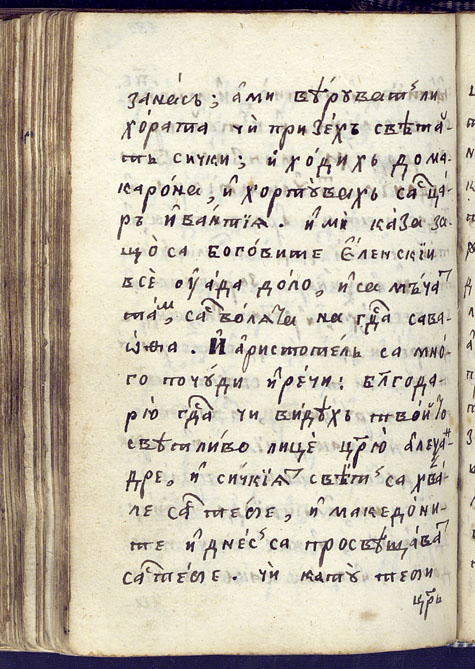 занасъ; ами вѣруватъ ли
хората чи призехъ свѣта-
тъ сички; и ходихь дома-
карона, и хортувахь са ца-
ръ ивантїа. и ми каза за-
що са боговите еленскїи
всѐ оу ада доло, и са мъча
там, са волята на гдⷭа сава-
ѡѳа. И аристотель са мно-
го почуди и речи; блгода-
рю гдⷭа чи видѣхъ твойто
свѣтливо лице црю алеѯа-
дре, и сичкїа свѣтъ са хва-
ле са тебе, и македони-
те и днесъ са просвѣщава
са тебе. чи като теби
црь